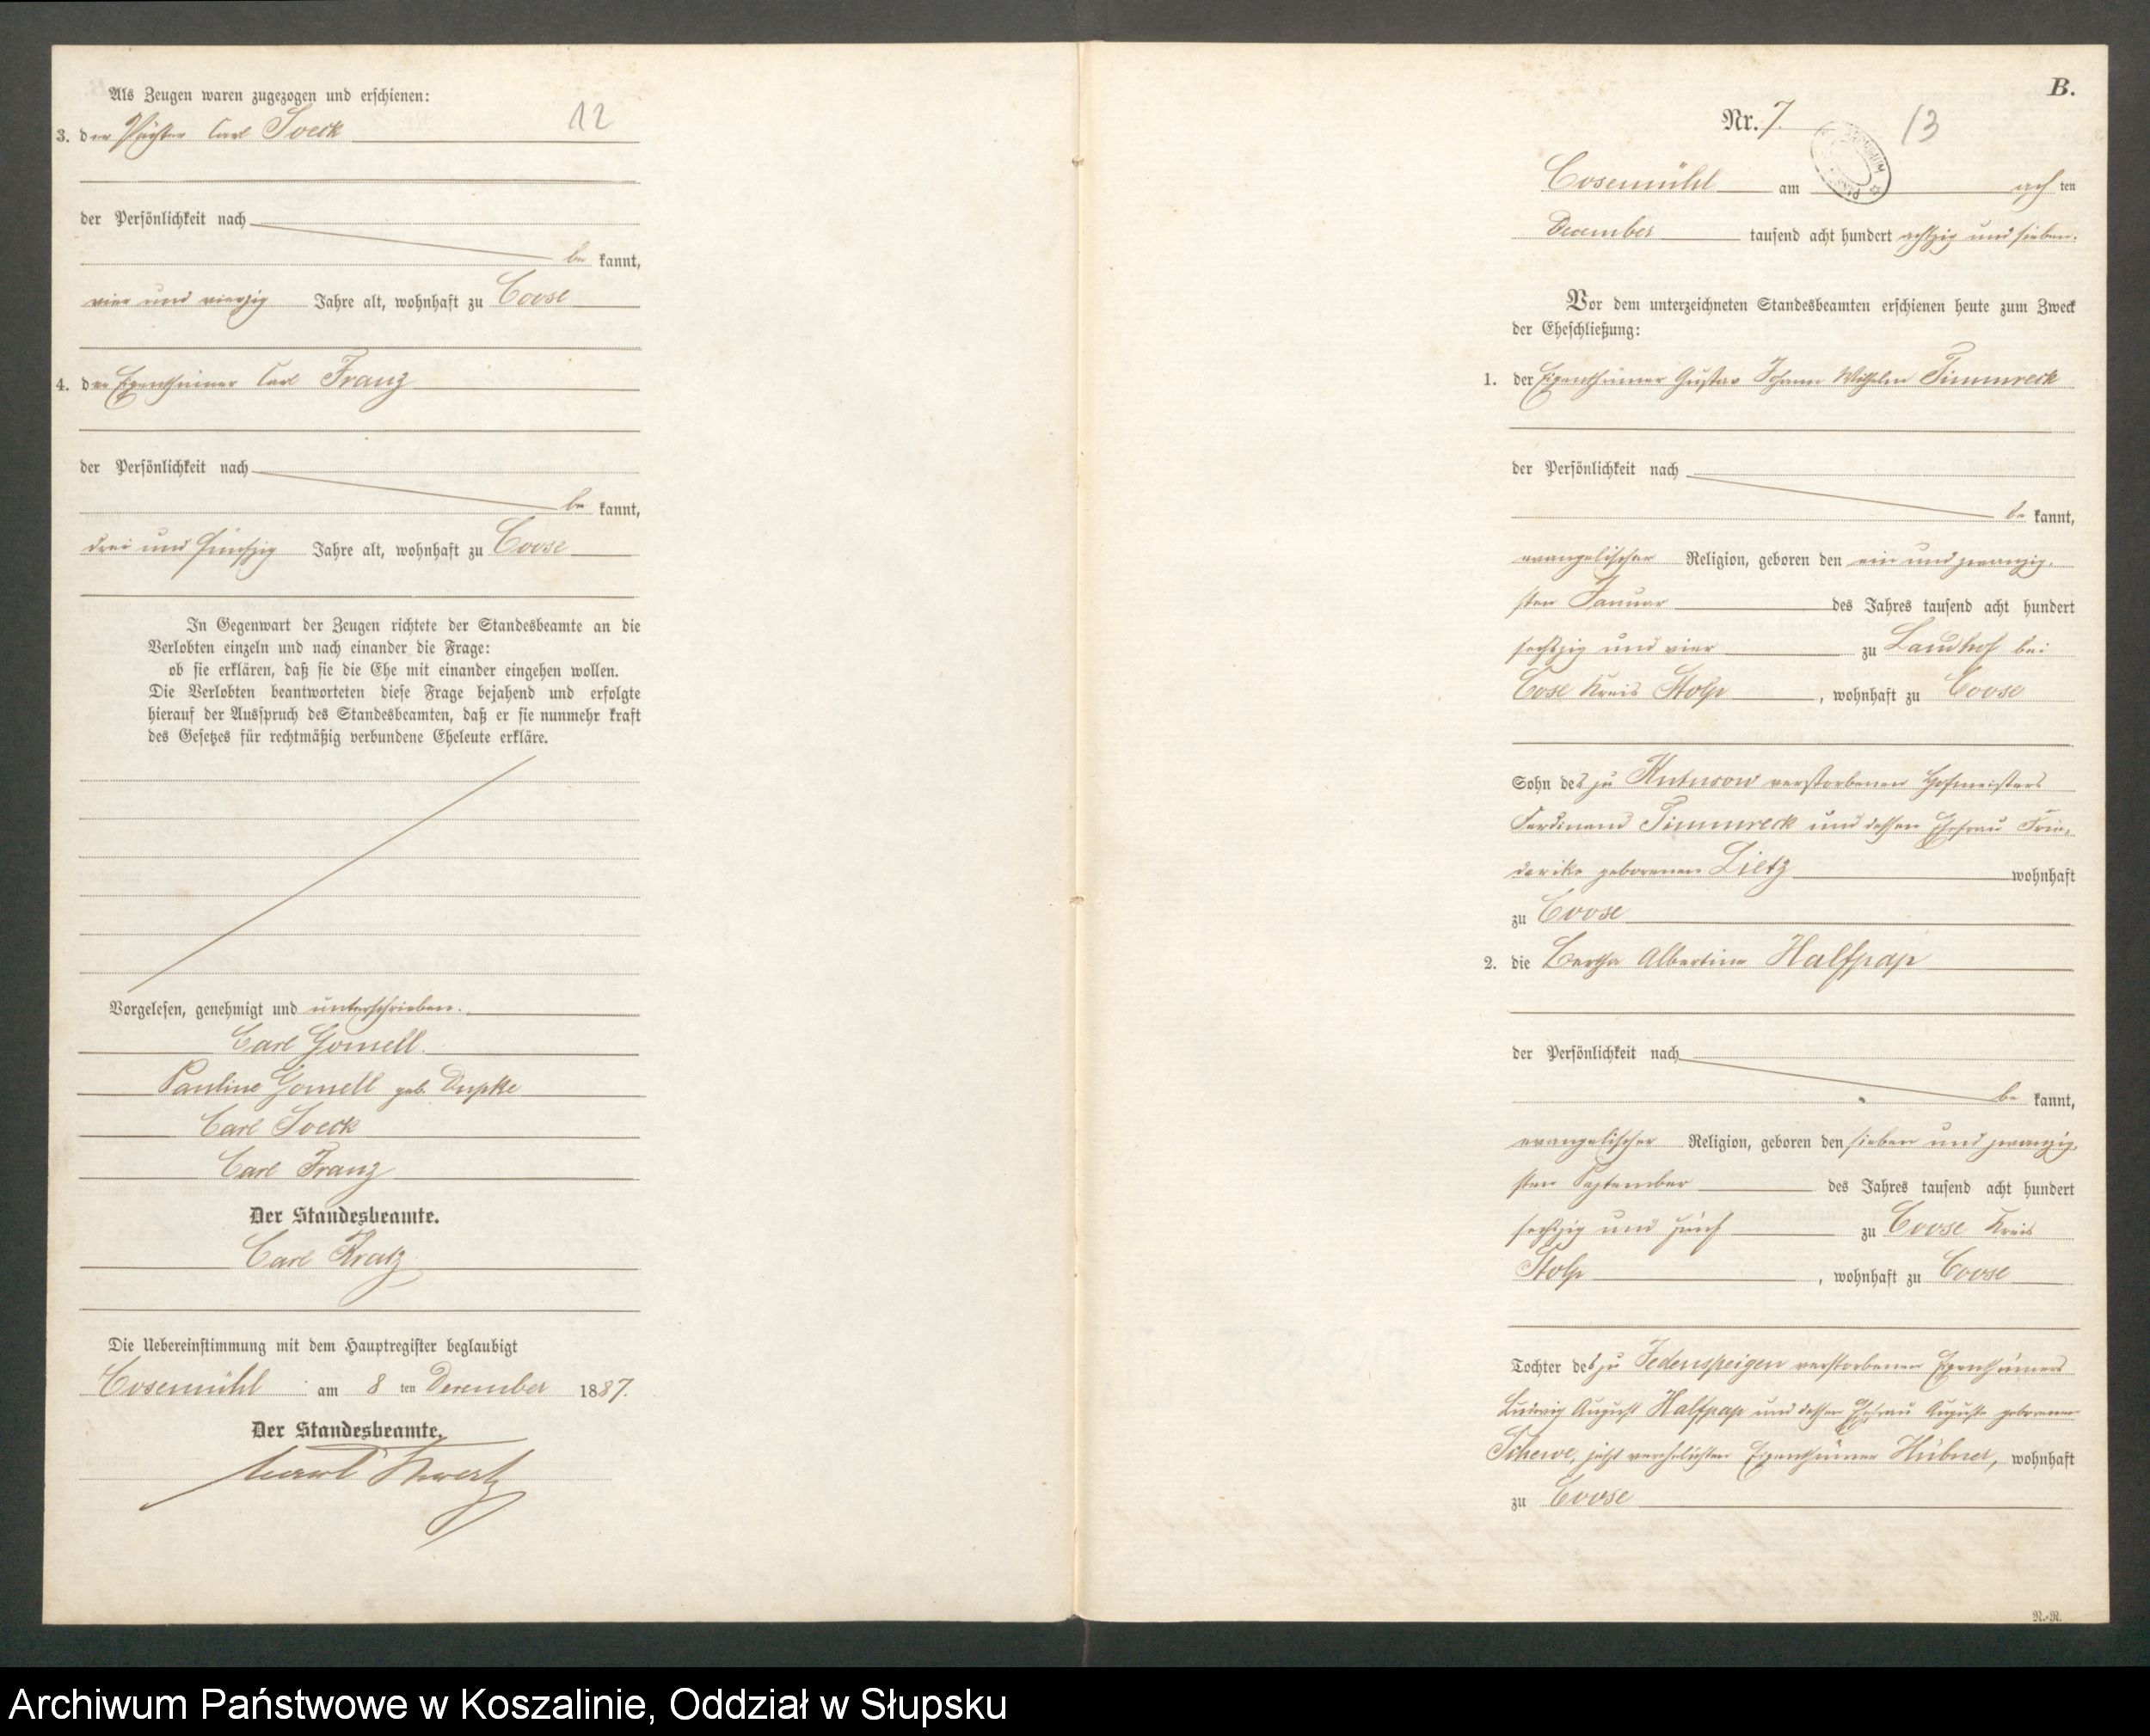 Als Zeugen waren zugezogen und erschienen:
12
3. der Pächter Carl Soeck
der Persönlichkeit nach
be kannt,
vier und vierzig Jahre alt, wohnhaft zu Coose
4. der Eigenthümer Carl Franz
der Persönlichkeit nach
be kannt,
drei und fünfzig Jahre alt, wohnhaft zu Coose
In Gegenwart der Zeugen richtete der Standesbeamte an die
Verlobten einzeln und nach einander die Frage:
ob sie erklären, daß sie die Ehe mit einander eingehen wollen.
Die Verlobten beantworteten diese Frage bejahend und erfolgte
hierauf der Ausspruch des Standesbeamten, daß er sie nunmehr kraft
des Gesetzes für rechtmäßig verbundene Eheleute erkläre.
Vorgelesen, genehmigt und unterschrieben.
Carl Gomell.
Pauline Gomell geb. Dupke
Carl Soeck
Carl Franz
Der Standesbeamte.
Carl Kratz
Die Uebereinstimmung mit dem Hauptregister beglaubigt
Cosemühl am 8 ten December 1887.
Der Standesbeamte.
B.
Nr. 7.
13
Cosemühl am ach ten
December tausend acht hundert achtzig und sieben.
Vor dem unterzeichneten Standesbeamten erschienen heute zum Zweck
der Eheschließung:
1. der Eigenthümer Gustav Johann Wilhelm Timmreck
der Persönlichkeit nach
be kannt,
evangelischer Religion, geboren den ein und zwanzig-
sten Januar des Jahres tausend acht hundert
sechszig und vier zu Landhof bei
Cose Kreis Stolp, wohnhaft zu Coose
Sohn des zu Kutusow verstorbenen Hofmeisters
Ferdinand Timmreck und dessen Ehefrau Frie-
derike geborenen Lietz wohnhaft
zu Coose
2. die Bertha Albertine Halfpap
der Persönlichkeit nach
be kannt,
evangelischer Religion, geboren den sieben und zwanzig-
sten September des Jahres tausend acht hundert
sechszig und fünf zu Coose Kreis
Stolp, wohnhaft zu Coose
Tochter des zu Jedenspeigen verstorbenen Eigenthümers
Ludwig August Halfpap und dessen Ehefrau Auguste geborenen
Schewe, jetzt verehelichten Eigenthümer Hübner, wohnhaft
zu Coose
N.-N.
Archiwum Państwowe w Koszalinie, Oddział w Słupsku